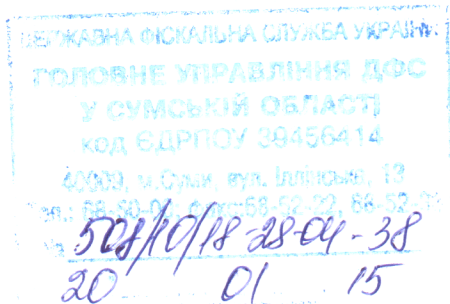 ДЕРЖАВНА ФІСКАЛЬНА СЛУЖБА УКРАЇНИ
ГОЛОВНЕ УПРАВЛІННЯ ДФС
У СУМСЬКІЙ ОБЛАСТІ
код ЄДРПОУ 39456414
40009, м.Суми, вул. Іллінська, 13
508/10/18-28-04-38
20 01 15